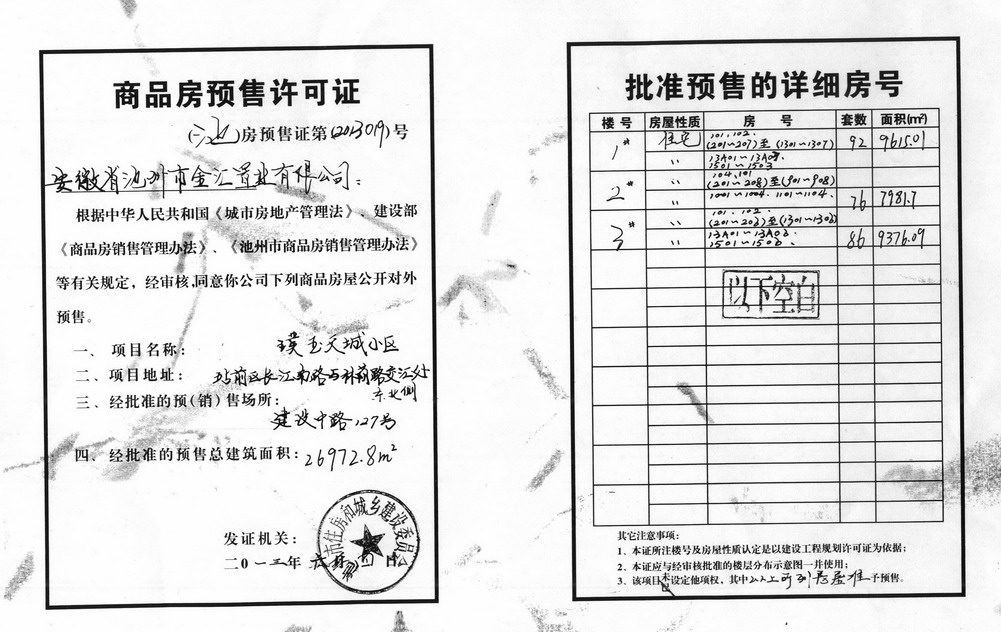 商品房预售许可证
(池)房预售证第(2013019)号
安徽省池州市金汇置业有限公司:
根据中华人民共和国《城市房地产管理法》、建设部
《商品房销售管理办法》、《池州市商品房销售管理办法》
等有关规定，经审核，同意你公司下列商品房屋公开对外
预售。
一、项目名称: 璞玉天城小区
二、项目地址: 站前区长江南路与站前路交汇处
东北侧
三、经批准的预(销)售场所:
建设中路127号
四、经批准的预售总建筑面积: 26972.8m²
发证机关:
市住房和城乡建设委员会
二0一三年六月 日
批准预售的详细房号
楼号 房屋性质 房号 套数 面积(m²)
1# 住宅 101.102. (201~207)至(1301~1307) 92 9615.01
〃 13A01~13A07. 1501~1503
2# 〃 104.101 (201~208)至(901~908)
〃 1001~1004. 1101~1104. 76 7981.7
3# 〃 101.102. (201~203)至(1301~1303)
〃 13A01~13A03. 1501~1503. 86 9376.09
以下空白
其它注意事项:
1．本证所注楼号及房屋性质认定是以建设工程规划许可证为依据;
2．本证应与经审核批准的楼层分布示意图一并使用;
3．该项目未设定他项权，其中以上所列房屋准予预售。